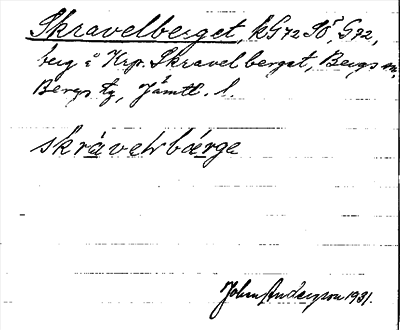 Skravelberget, kG72SÖ, G72,
berg å Krp. Skravelberget, Bergs sn,
Bergs tg, Jämtl. l.
skråvelbärge
John Anderson 1931.